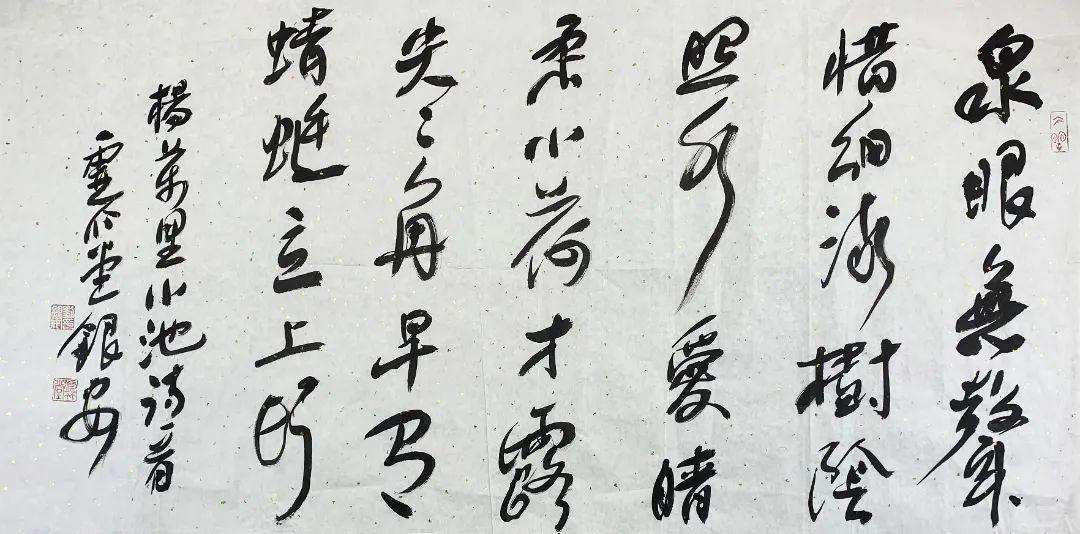 泉眼無聲
惜細流樹陰
照水愛晴
柔小荷才露
尖〻角早有
蜻蜓立上頭
楊萬里小池詩首
堂銀安